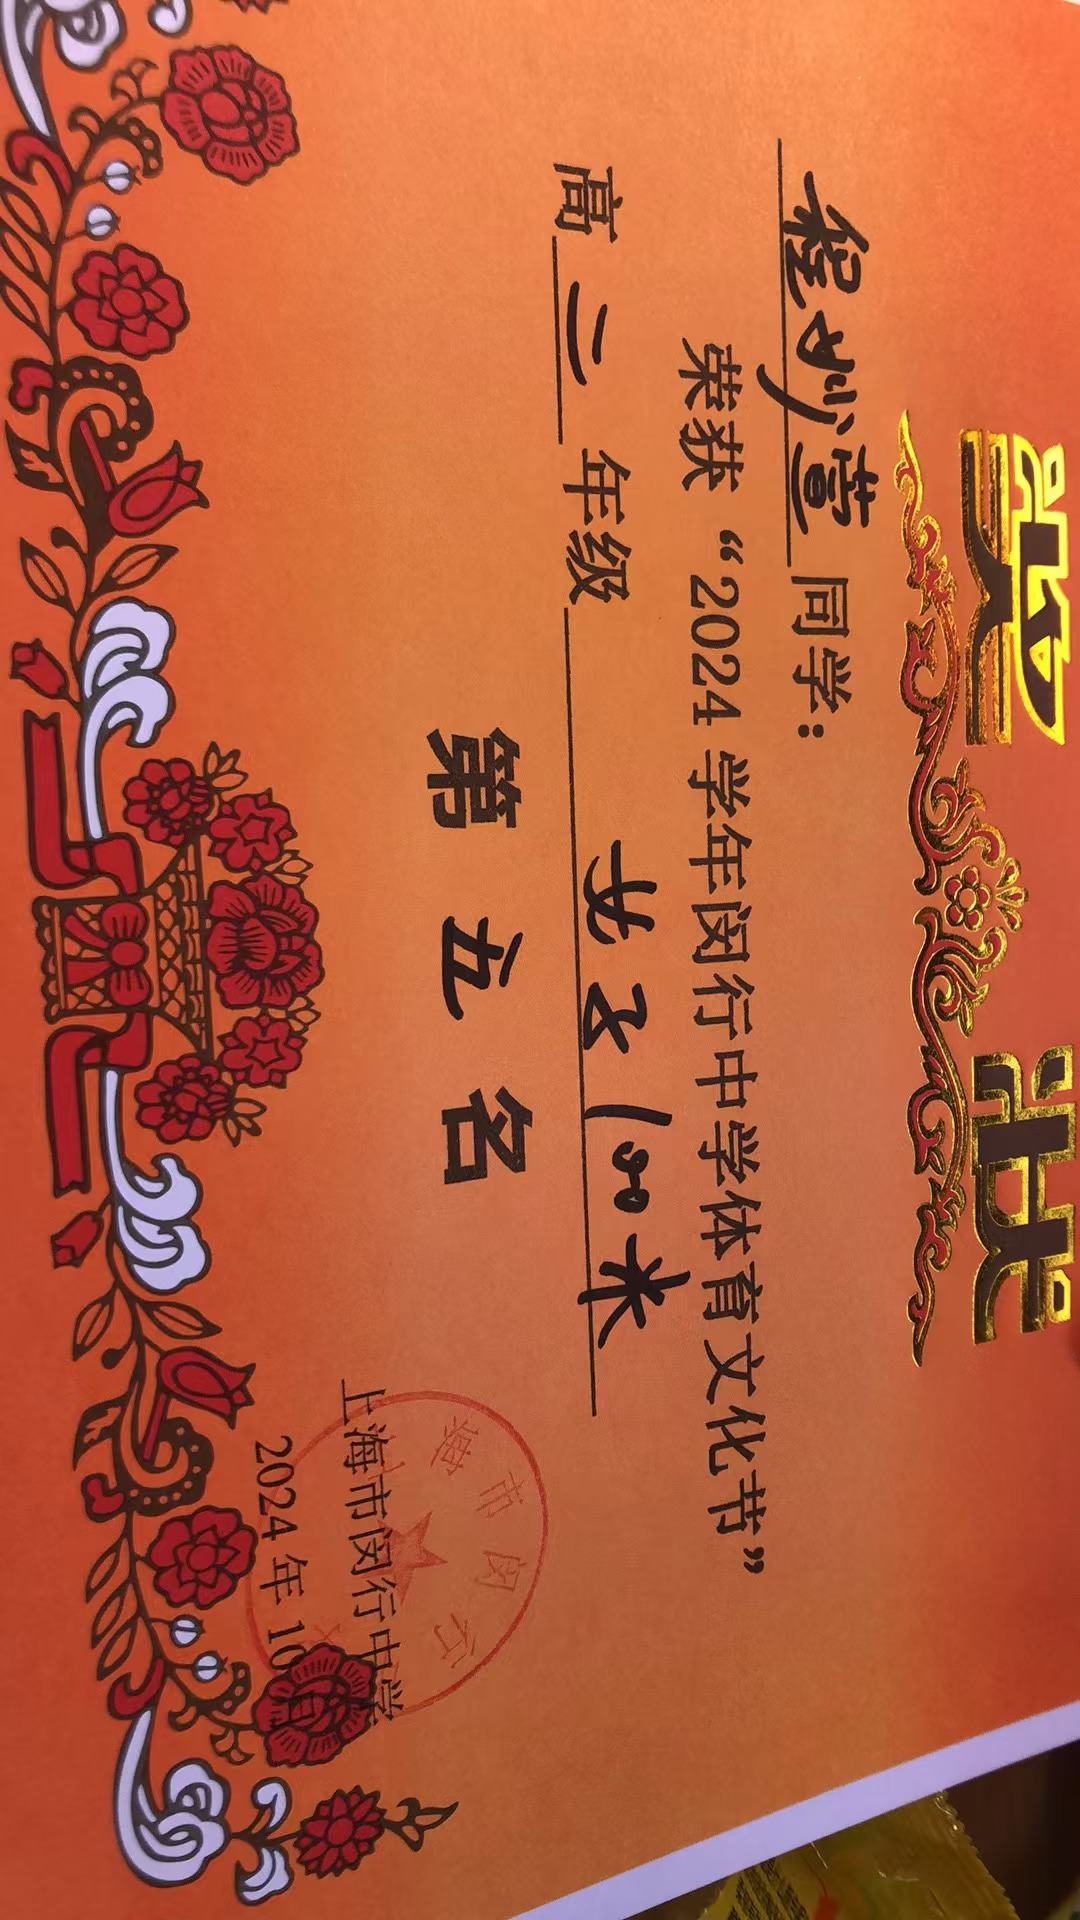 奖状
程妙萱同学：
荣获“2024学年闵行中学体育文化节”
高二年级 女子100米
第五名
海市闵行
上海市闵行中学
2024年10月